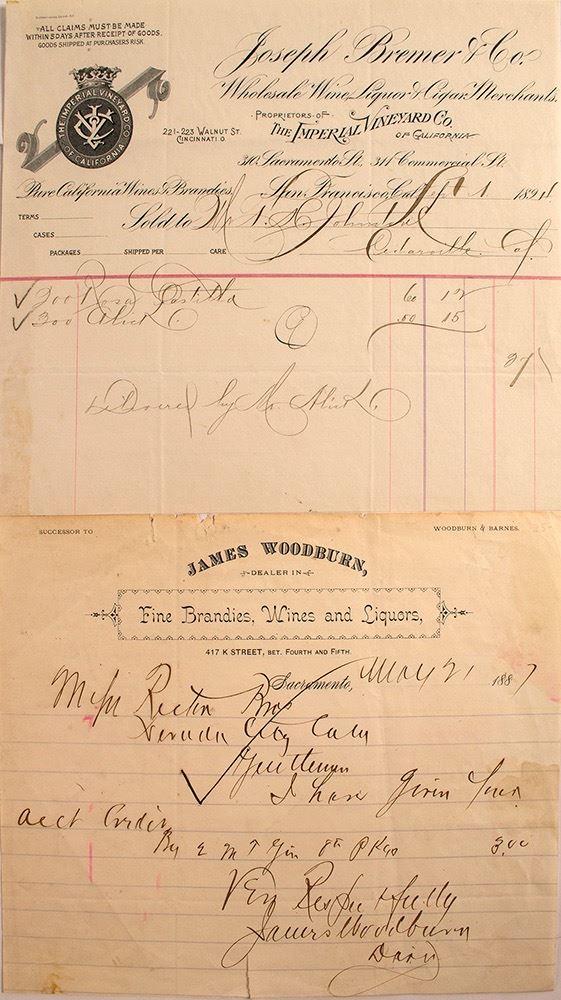 ALL CLAIMS MUST BE MADE
WITHIN 5 DAYS AFTER RECEIPT OF GOODS.
GOODS SHIPPED AT PURCHASERS RISK.
Joseph Bremer & Co.
Wholesale Wine, Liquor & Cigar Merchants.
PROPRIETORS OF
THE IMPERIAL VINEYARD CO.
OF CALIFORNIA
THE IMPERIAL VINEYARD CO.
OF CALIFORNIA
221-223 WALNUT ST.
CINCINNATI. O.
310 Sacramento St. 311 Commercial St.
Pure California Wines & Brandies.
San Francisco, Cal. 1 1891
TERMS
Sold to
Cedarville Cal.
CASES
PACKAGES SHIPPED PER CARE
300 Rosa
300 Alice
60
.50 15
by
SUCCESSOR TO WOODBURN & BARNES.
JAMES WOODBURN,
DEALER IN
Fine Brandies, Wines and Liquors,
417 K STREET, BET. FOURTH AND FIFTH.
Sacramento, May 21 1887
Rector Bros
Nevada City Caln
Gentlemen
I have Given Your
acct Credit
By 2 M T Gin Pkgs 3.00
Very Respectfully
James Woodburn